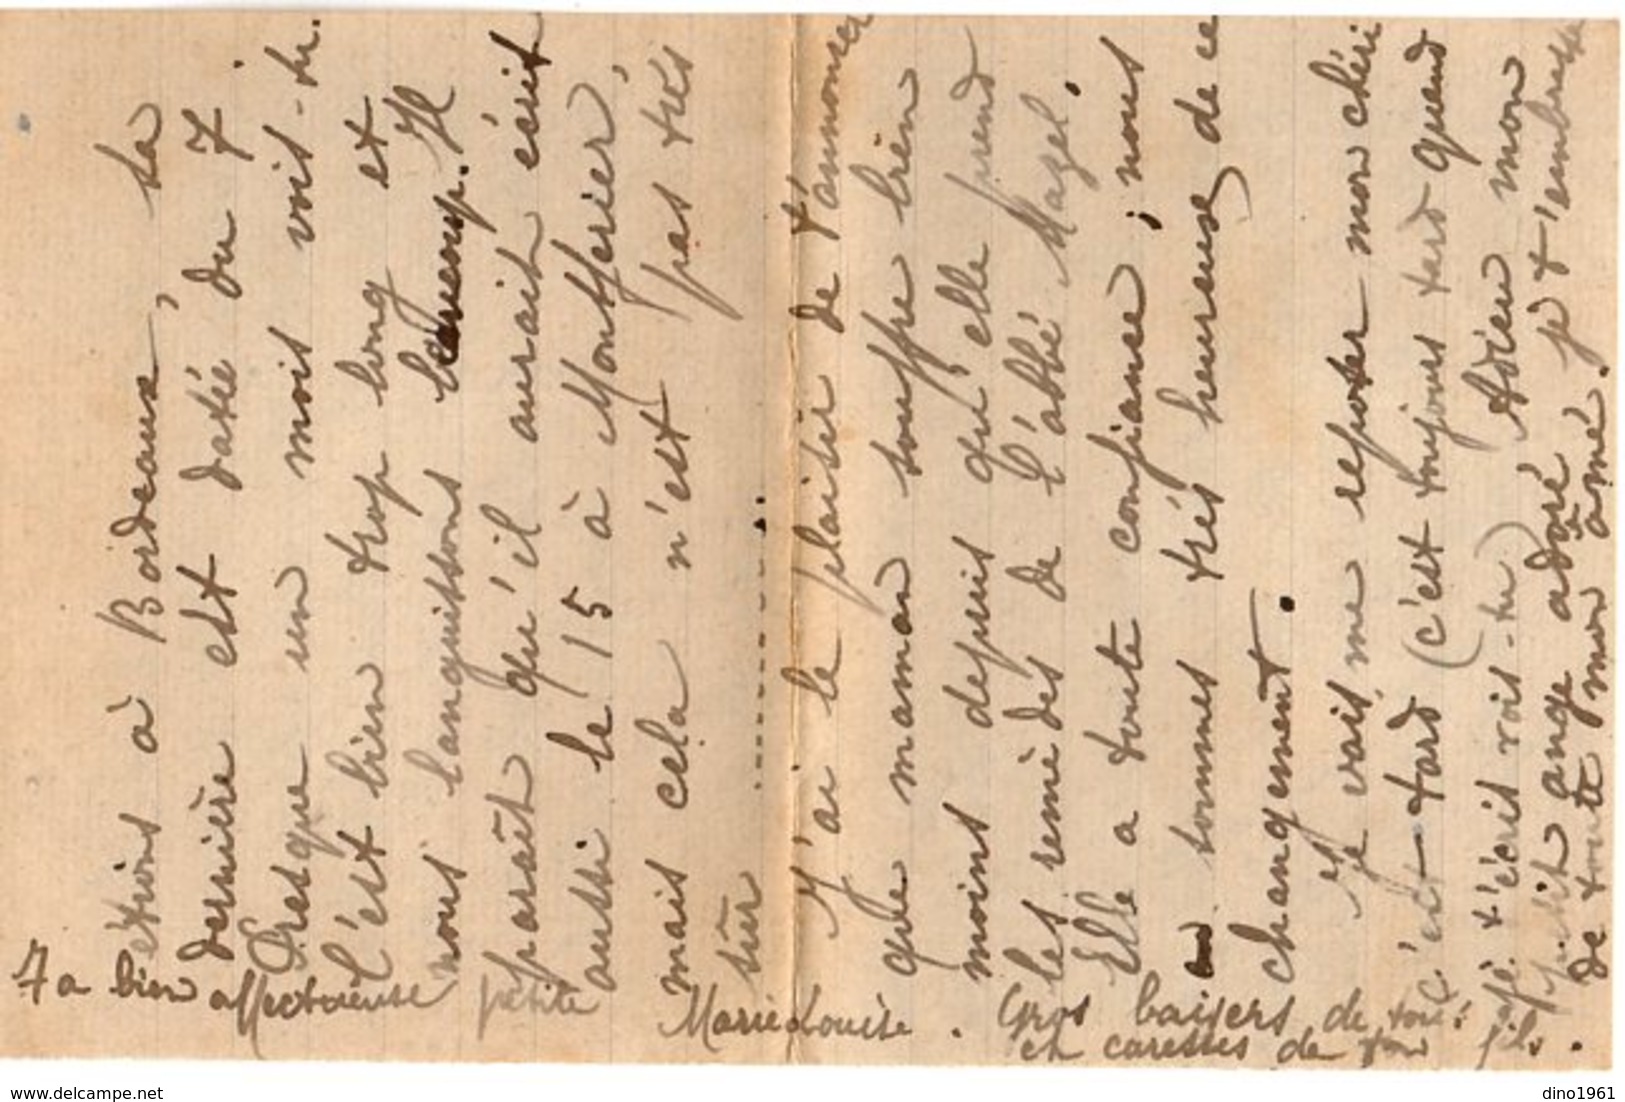 étions à Bordeaux, ta
dernière est datée du 7.
Presque un mois vois-tu.
C'est bien trop long et
nous languissons beaucoup. Il
parait qu'il aurait écrit
aussi le 15 à Montferrier,
mais cela n'est pas très
sûr ..........
J'ai le plaisir de t'annoncer
que maman souffre bien
moins depuis qu'elle prend
les remèdes de l'abbé Magel.
Elle a toute confiance ; nous
sommes très heureuses de ce
changement.
Je vais me reposer mon chéri
c'est tard (c'est toujours tard quand
je t'écris vois-tu) Adieu mon
petit ange adoré je t'embrasse
de toute mon âme.
Ta bien affectueuse petite Marie Louise. Gros baisers de
et caresses de ton fils.
www.delcampe.net
dino1961